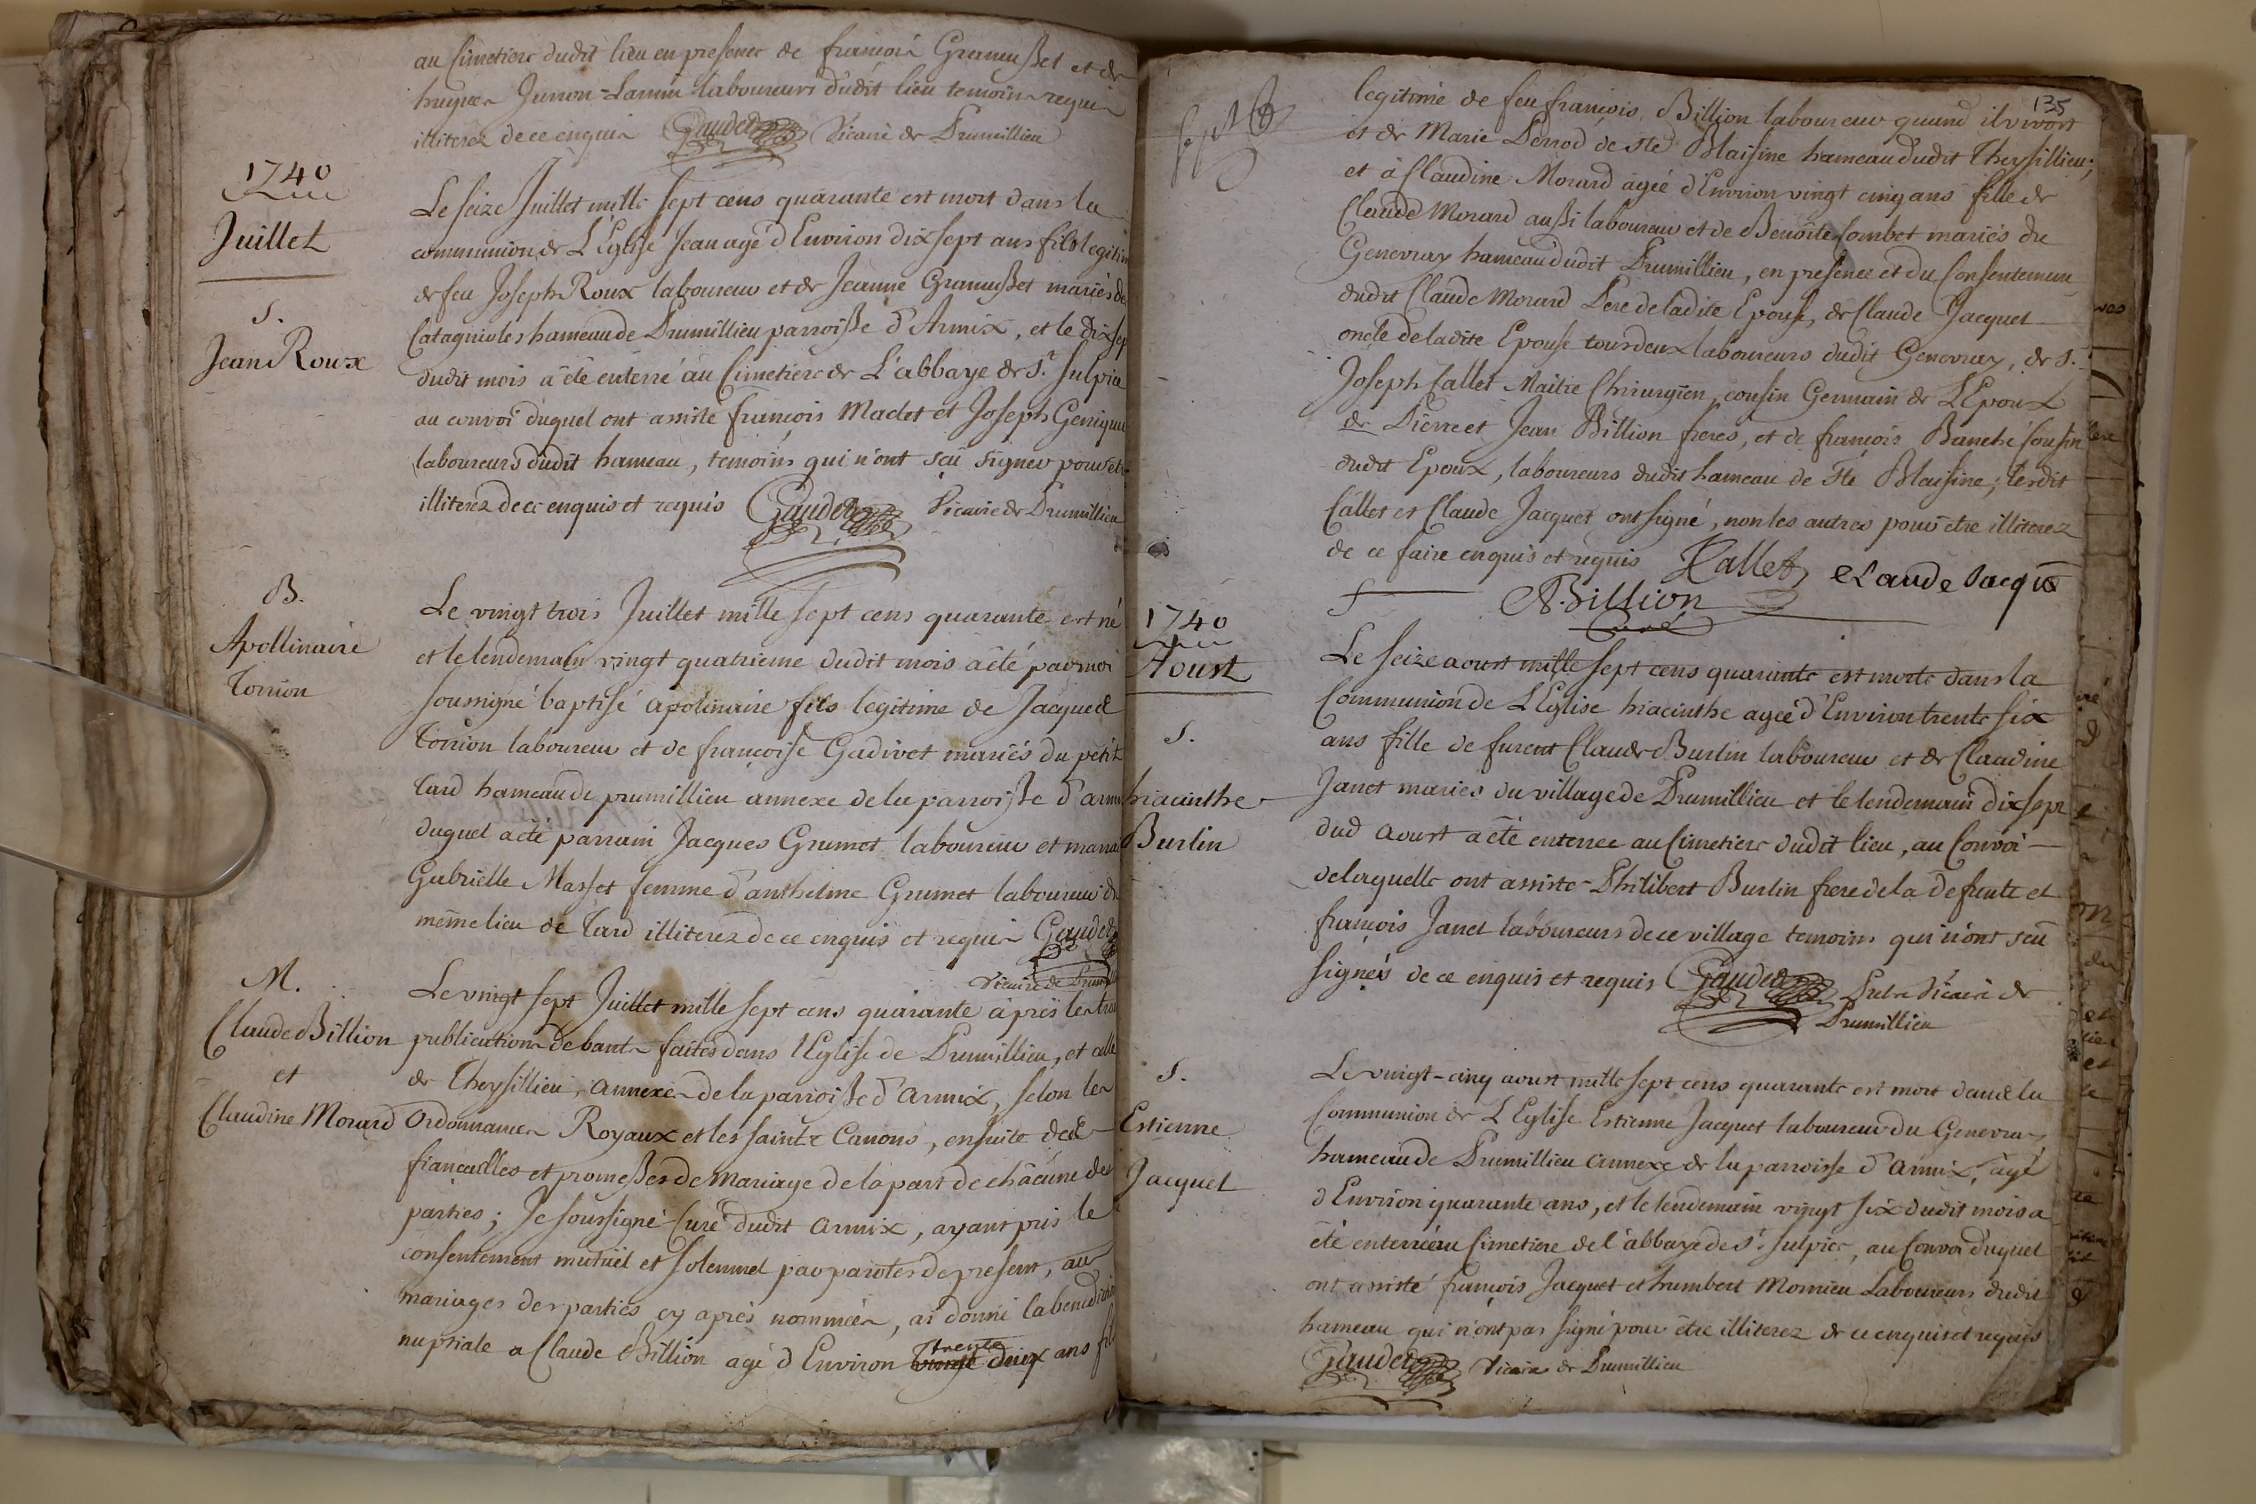 au Cimetiere dudit lieu en presence de francois Gramusset et de
hugues Junon-Lamin laboureurs dudit lieu temoins requis
illiterez de ce enquis Gaudet Vicaire de Prumillieu
1740
Juillet
S.
Jean Roux
Le seize Juillet mille sept cens quarante est mort dans la
communion de L'Eglise Jean agé d'Environ dix sept ans fils legitim
de feu Joseph Roux laboureur et de Jeanne Gramusset mariés de
Catagnioles hameau de Prumillieu parroisse d'Armix, et le dix sep
dudit mois a été enterré au Cimetiere de L'abbaye de St. Sulpice
au convoi duquel ont assisté francois Maclet et Joseph
laboureurs dudit hameau, temoins qui n'ont scu signer pour etre
illiterez de ce enquis et requis Gaudet Vicaire de Prumillieu
B.
Apollinaire
Torrion
Le vingt trois Juillet mille sept cens quarante est né
et le lendemain vingt quatrieme dudit mois a été par moi
soussigné baptisé apolinaire fils legitime de Jacques
Torrion laboureur et de francoise Gadivet mariés du petit
Tard hameau de prumillieu annexe de la parroisse d'armi
duquel a été parrain Jacques Grumet laboureur et marrai
Gabrielle Masset femme d'anthelme Grumet laboureur du
même lieu de Tard illiterez de ce enquis et requis Gaudet
Vicaire de Prumill
M.
Claude Billion
et
Claudine Morard
Le vingt sept Juillet mille sept cens quarante après les trois
publications de bants faites dans l'Eglise de Prumillieu, et celle
de Theysillieu, annexes de la parroisse d'armix, selon les
Ordonnances Royaux et les saints Canons, ensuite des
fiançailles et promesses de Mariage de la part de châcune des
parties; Je soussigné Curé dudit armix, ayant pris le
consentement mutüel et solemnel par paroles de present, au
mariages des parties cy après nommées, ai donné la benedictio
nuptiale a Claude Billion agé d'Environ trente deux ans fil
135
legitime de feu françois Billion laboureur quand il vivoit
et de Marie Perrod de Ste Blaisine hameau dudit Theysillieu;
et à Claudine Morard agée d'Environ vingt cinq ans fille de
Claude Morard aussi laboureur et de Benoite Combet mariés du
Genevray hameau dudit Prumillieu, en presence et du Consentement
dudit Claude Morard Pere de ladite Epouse, de Claude Jacquet
oncle de ladite Epouse tous deux laboureurs dudit Genevray, de S.
Joseph Callet Maitre Chirurgien, cousin Germain de L'Epoux
de Pierre et Jean Billion freres, et de françois Banché Cousin
dudit Epoux, laboureurs dudit hameau de Ste Blaisine; lesdit
Callet et Claude Jacquet ont signé, non les autres pour etre illiterez
de ce faire enquis et requis Callet Claude Jacque
Billion
Curé
1740
Aoust
S.
hiacinthe
Burlin
Le seize aoust mille sept cens quarante est morte dans la
Communion de L'Eglise hiacinthe agée d'Environ trente six
ans fille de furent Claude Burlin laboureur et de Claudine
Janet mariés du village de Prumillieu et le lendemain dix sept
dud aoust a été enterrée au Cimetiere dudit lieu, au Convoi
de laquelle ont assisté Philibert Burlin frere de la defunte et
françois Janet laboureurs de ce village temoins qui n'ont scu
signer de ce enquis et requis Gaudet Vicaire de
Prumillieu
S.
Estienne
Jacquet
Le vingt-cinq aoust mille sept cens quarante est mort dans la
Communion de L'Eglise Estienne Jacquet laboureur du Genevray
hameau de Prumillieu annexe de la parroisse d'armix, agé
d'Environ quarante ans, et le lendemain vingt six dudit mois a
été enterré au Cimetiere de l'abbaye de St. Sulpice, au Convoi duquel
ont assisté françois Jacquet et humbert Monnieu Laboureurs dudit
hameau qui n'ont pas signé pour être illiterez de ce enquis et requis
Gaudet Vicaire de Prumillieu